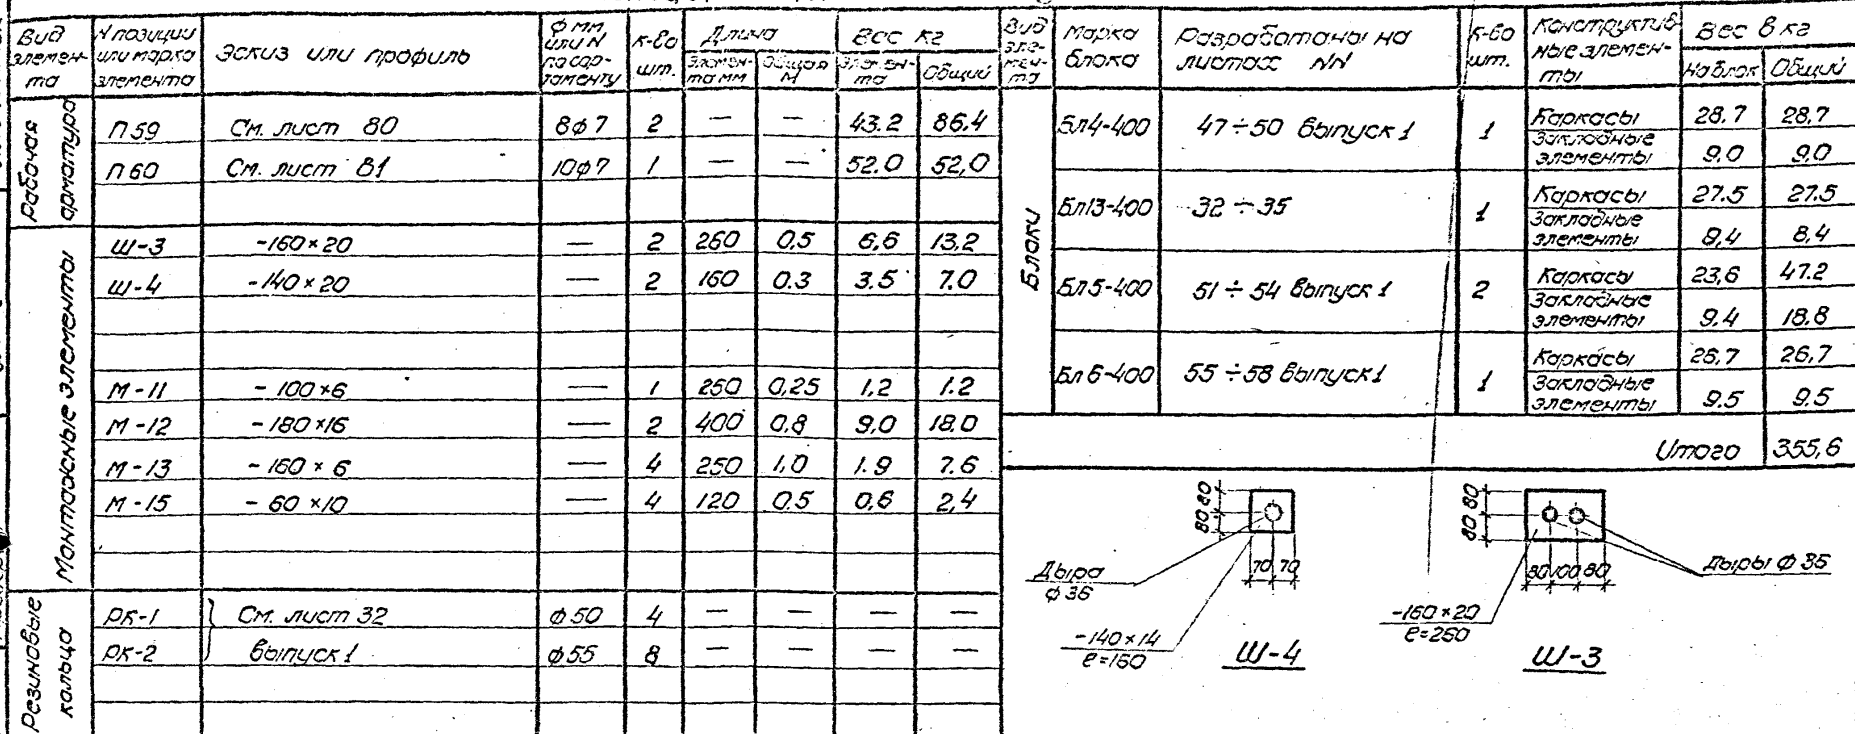 Вид элемен- та | N позиции или марка элемента | Эскиз или профиль | Ф мм или N по сор- таменту | К-во шт. | Длина | Вес кг
Элемен- та мм | Общая М | Элемен- та | Общий
Рабочая арматура
П59 | См. лист 80 | 8ф7 | 2 | — | — | 43.2 | 86.4
П60 | См. лист 81 | 10ф7 | 1 | — | — | 52.0 | 52,0
Монтажные элементы
Ш-3 | -160×20 | — | 2 | 260 | 0.5 | 6,6 | 13,2
Ш-4 | -140×20 | — | 2 | 160 | 0.3 | 3.5 | 7.0
М-11 | -100×6 | — | 1 | 250 | 0,25 | 1,2 | 1.2
М-12 | -180×16 | — | 2 | 400 | 0,8 | 9,0 | 18.0
М-13 | -160×6 | — | 4 | 250 | 1,0 | 1.9 | 7.6
М-15 | -60×10 | — | 4 | 120 | 0.5 | 0,6 | 2,4
Резиновые кольца
РК-1 | См. лист 32 | ф50 | 4 | — | — | — | —
РК-2 | выпуск 1 | ф55 | 8 | — | — | — | —
Вид эле- мен- та | Марка блока | Разработаны на листах NN | К-во шт. | Конструктив- ные элемен- ты | Вес в кг
На блок | Общий
Блоки
Бл4-400 | 47÷50 выпуск 1 | 1 | Каркасы | 28.7 | 28,7
Закладные элементы | 9.0 | 9.0
Бл13-400 | 32÷35 | 1 | Каркасы | 27.5 | 27.5
Закладные элементы | 8,4 | 8,4
Бл5-400 | 51÷54 выпуск 1 | 2 | Каркасы | 23,6 | 47.2
Закладные элементы | 9.4 | 18.8
Бл6-400 | 55÷58 выпуск 1 | 1 | Каркасы | 26,7 | 26,7
Закладные элементы | 9.5 | 9.5
Итого | 355,6
80 80
Дыра
ф36
70 70
-140×14
е=160
Ш-4
80 80
80 100 80
Дыры ф 36
-160×20
е=260
Ш-3